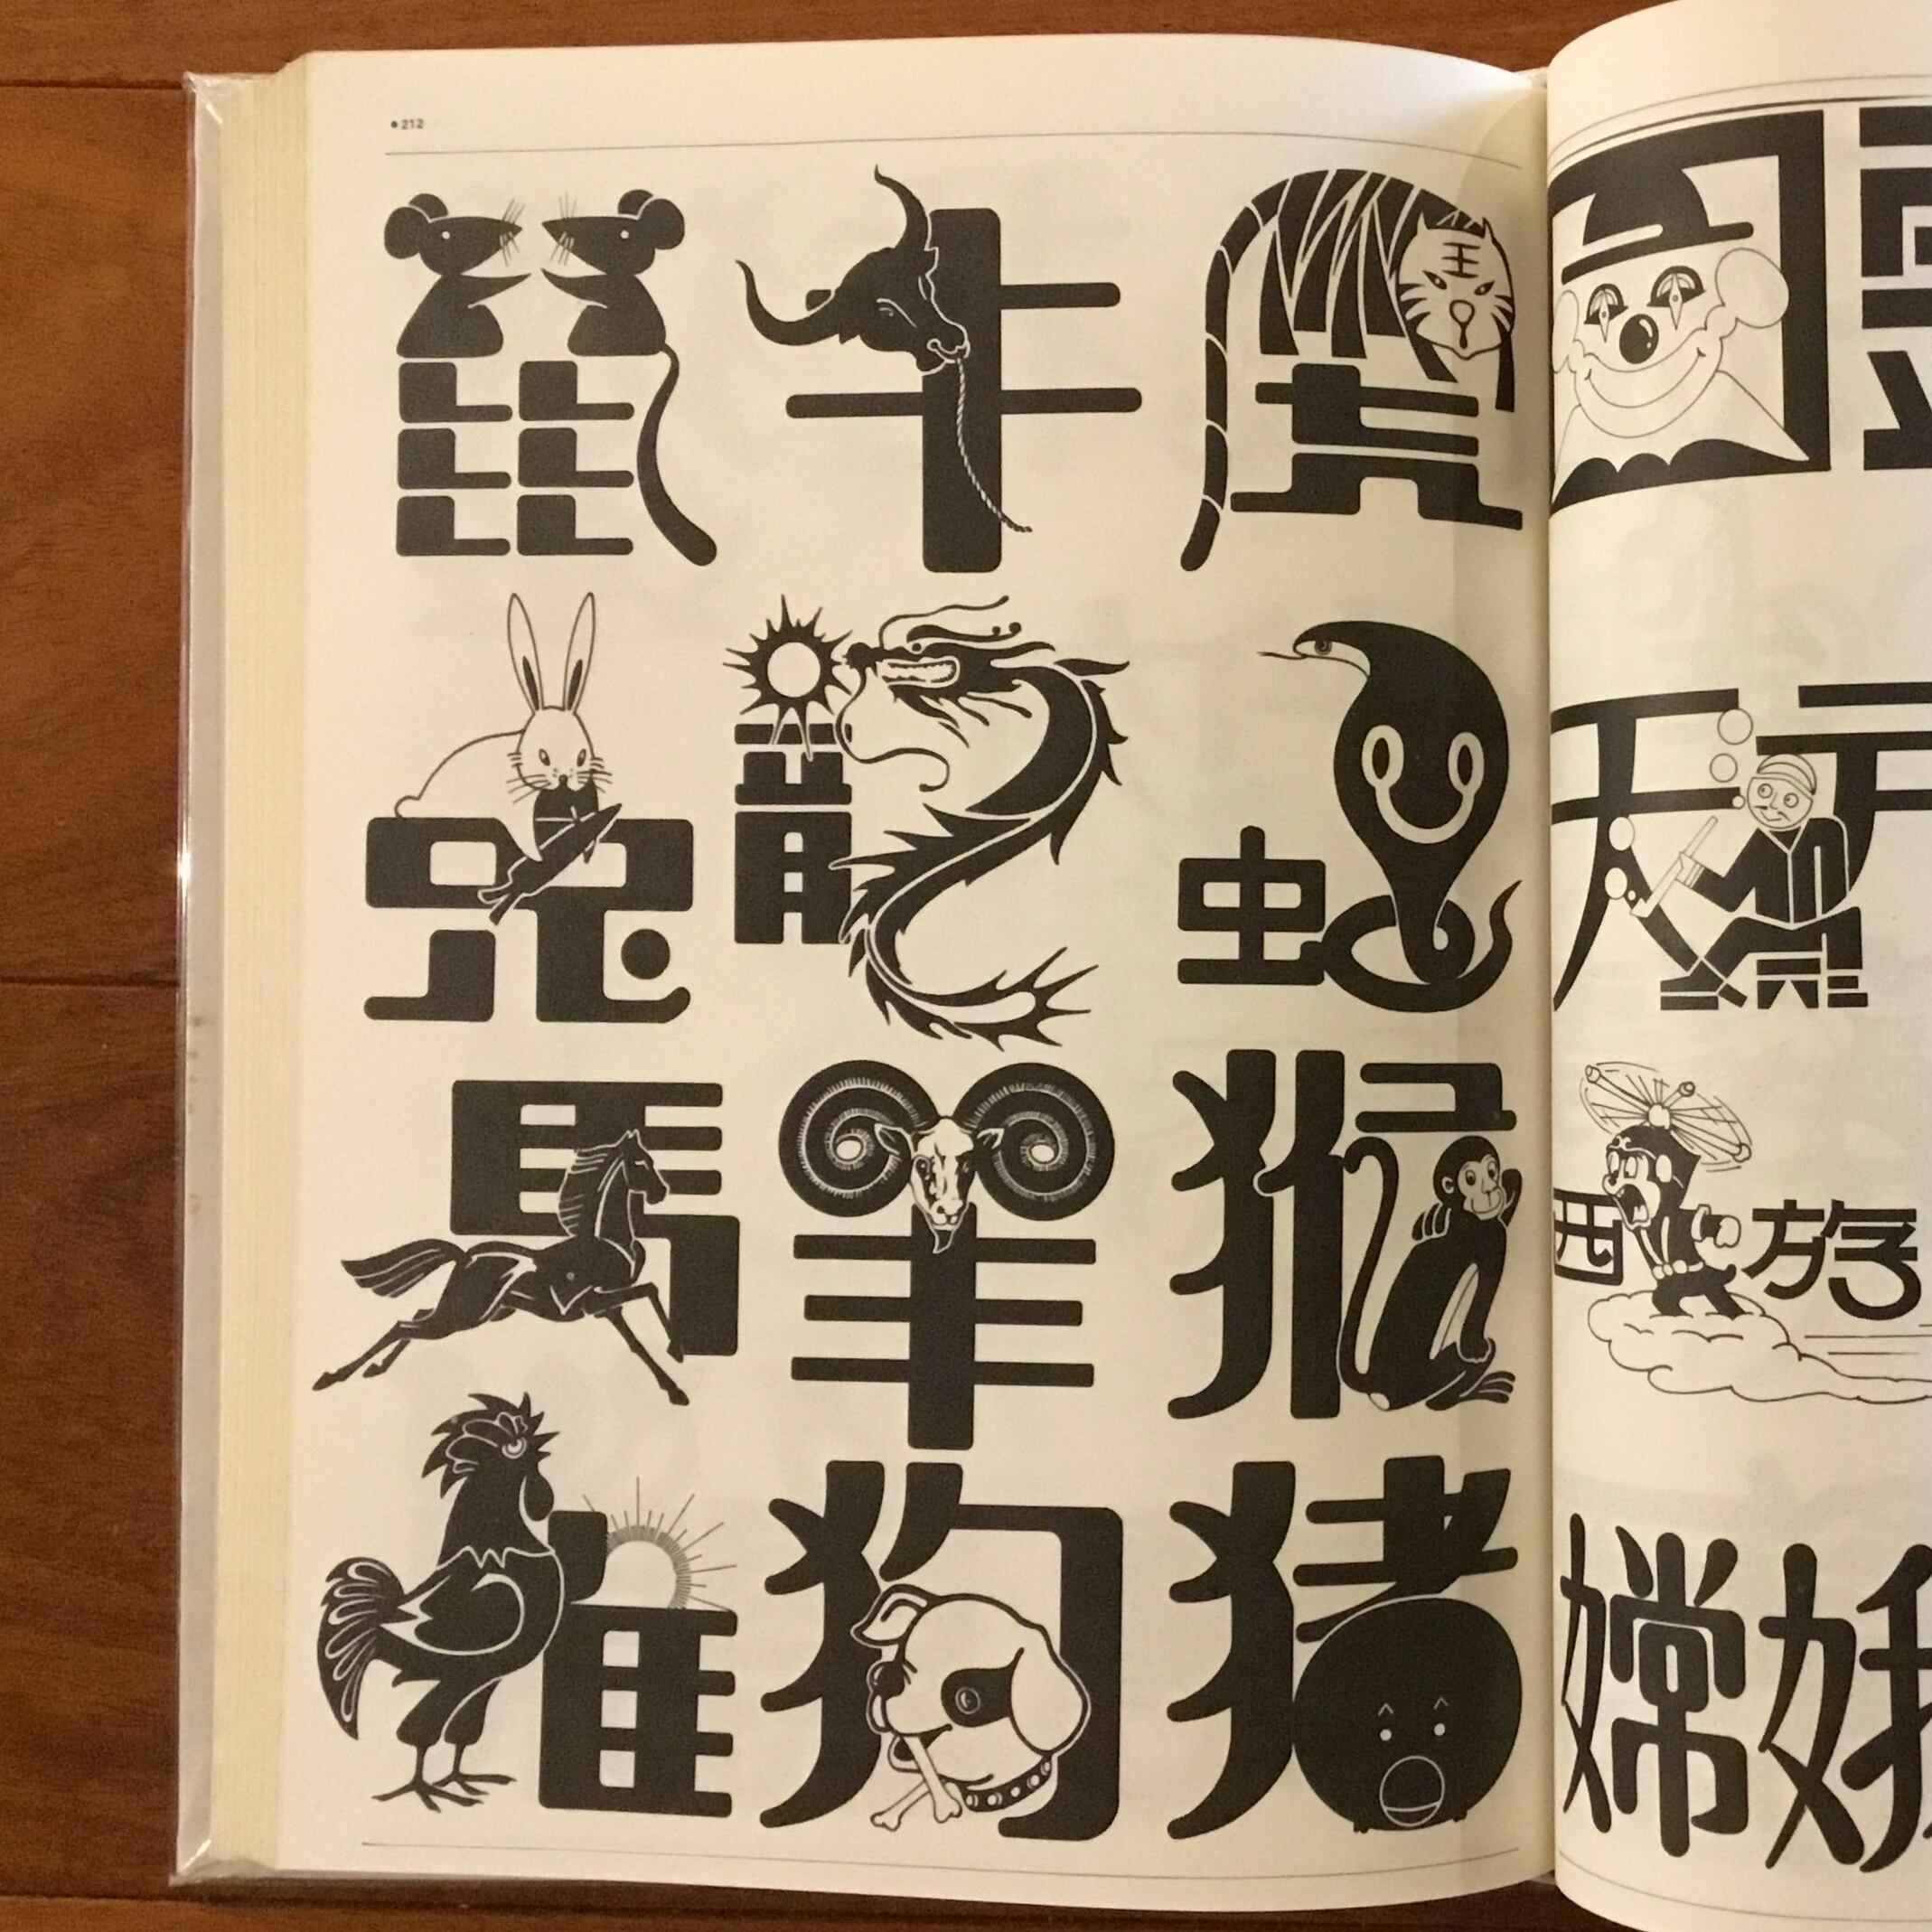 ●212
鼠牛虎
王
兔龍蛇
馬羊猴
雞狗猪
天
西遊
嫦娥